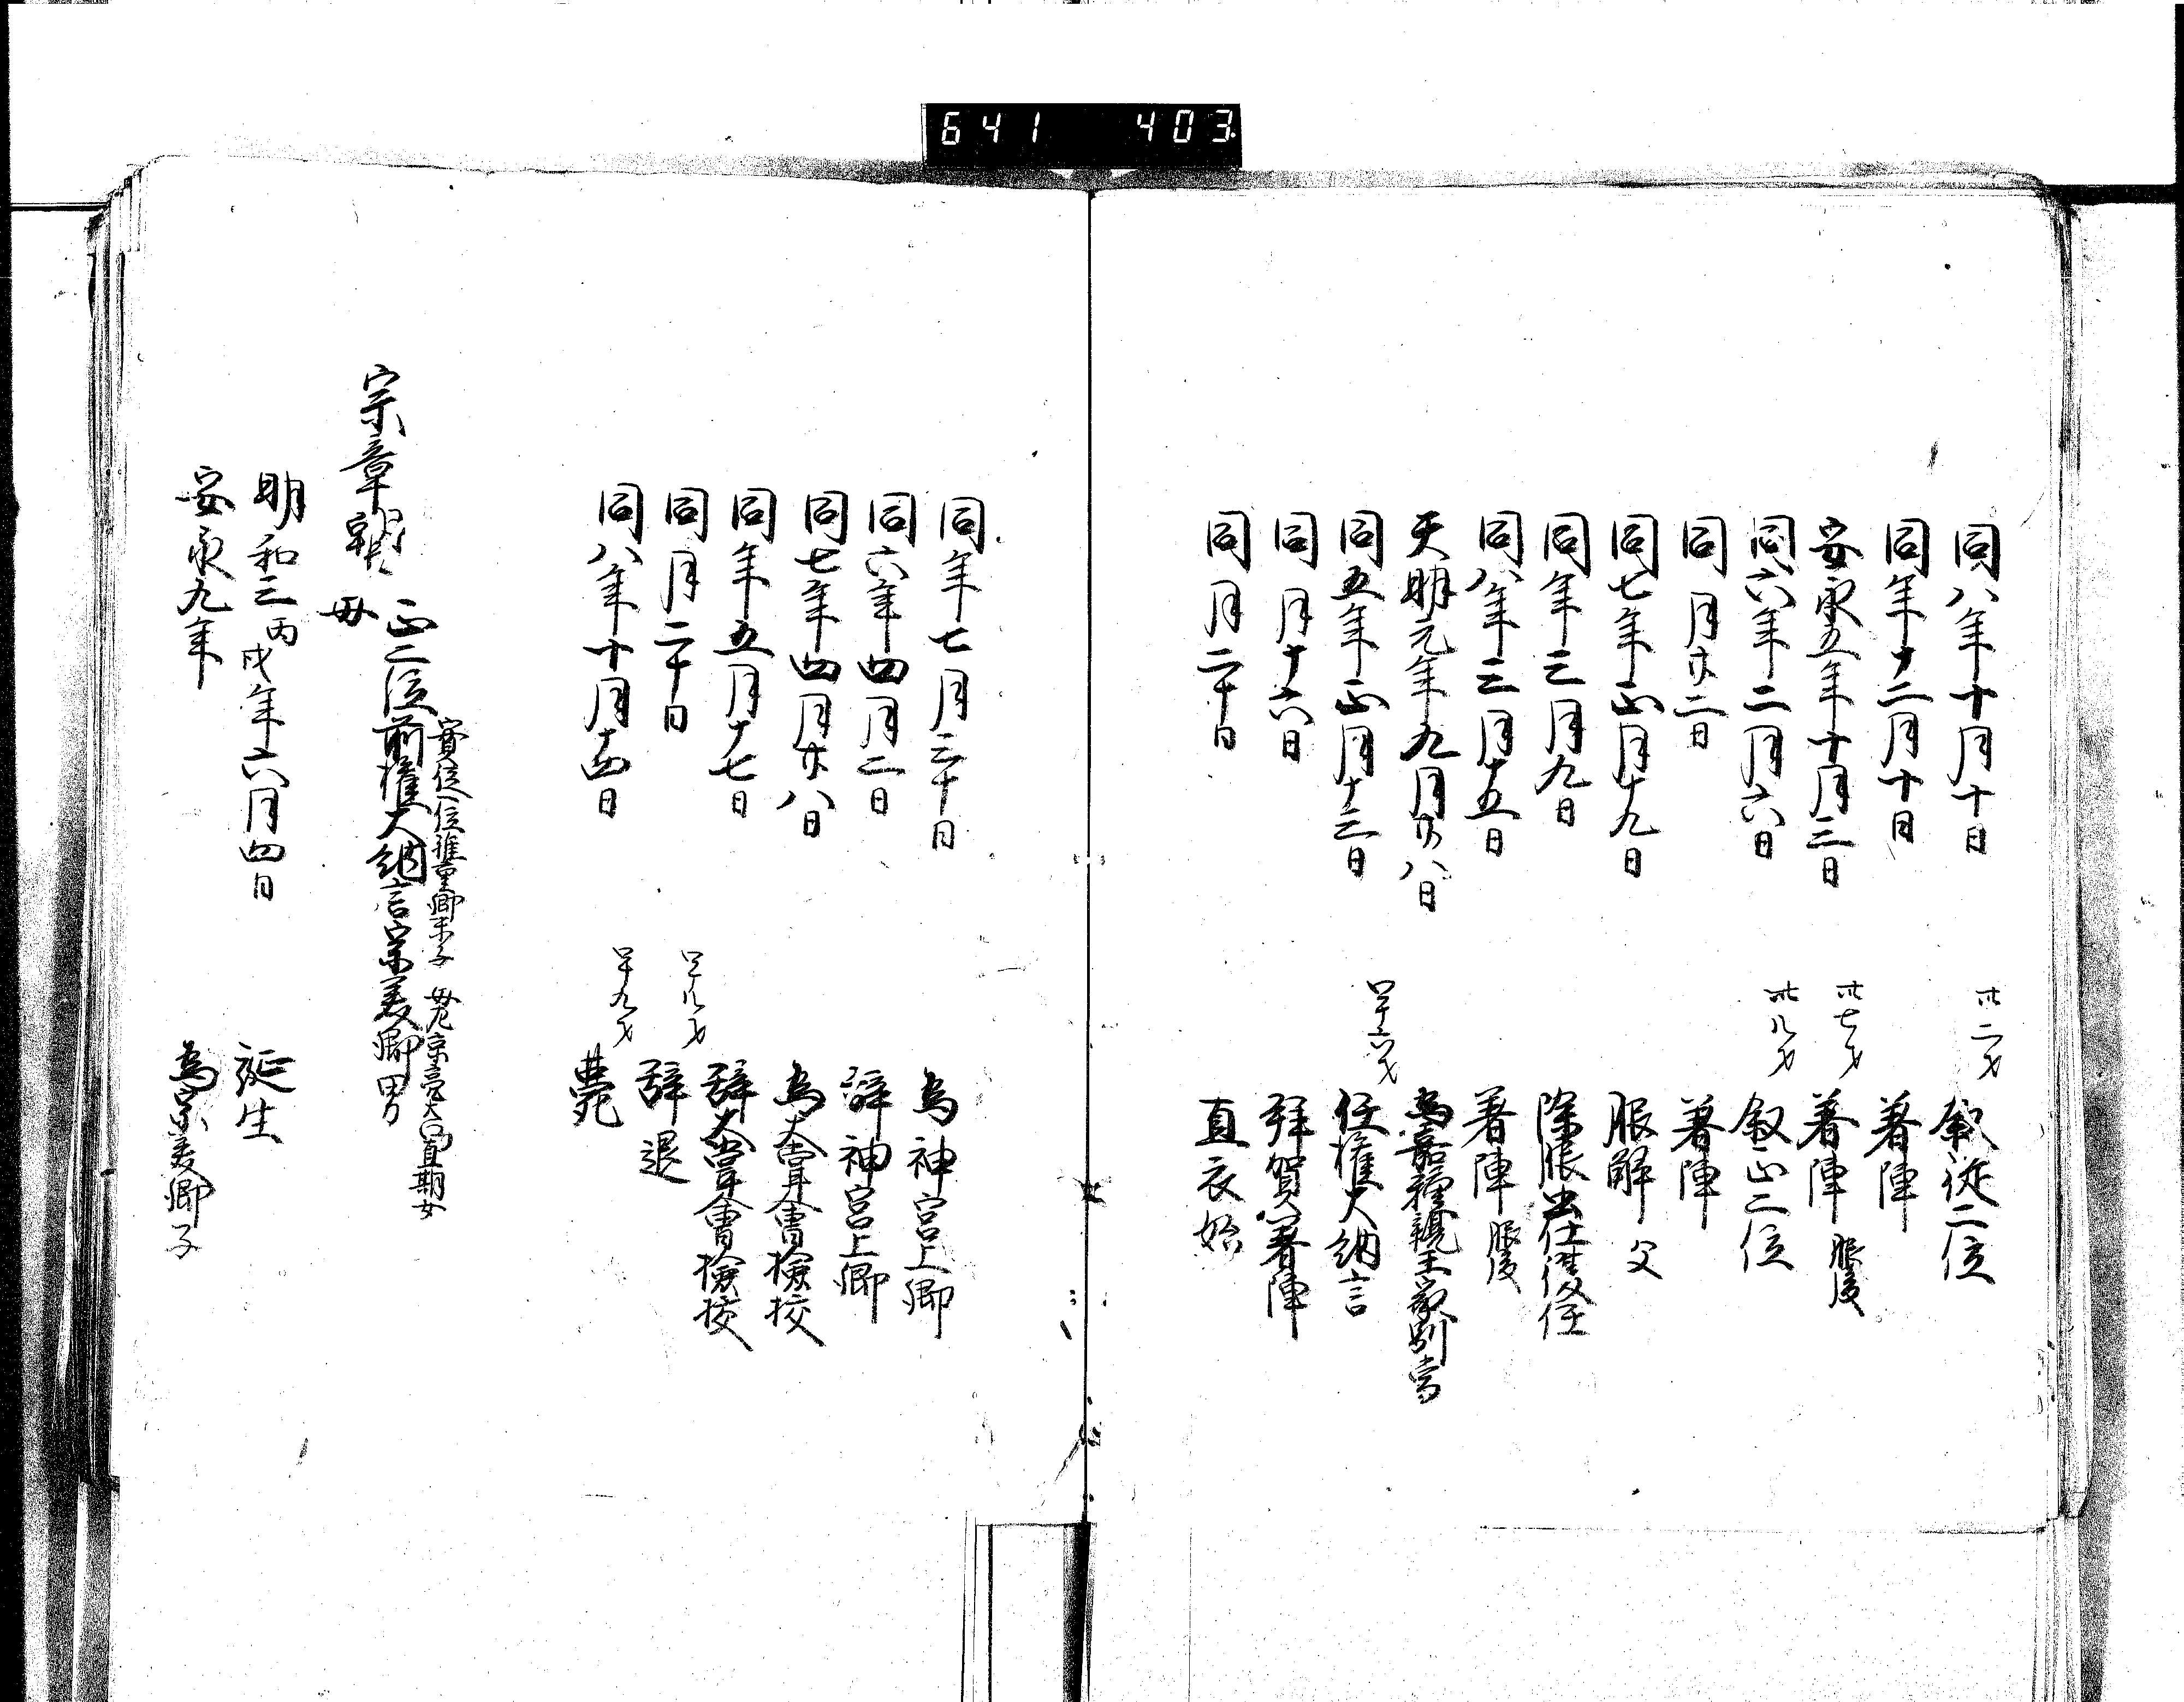 641 403
同八年十月十日 卅二才 叙従二位
同年十二月十日 著陣
安永五年十月三日 卅七才 著陣 服後
同六年二月六日 卅八才 叙正二位
同月廿二日 著陣
同七年正月十九日 服解 父
同年三月九日 除服出仕復任
同八年三月十五日 著陣 服後
天明元年九月廿八日 為嘉種親王家別当
同五年正月十三日 四十六才 任権大納言
同月十六日 拝賀著陣
同月二十日 直衣始
同年七月三十日 為神宮上卿
同六年四月二日 辞神宮上卿
同七年四月廿八日 為大嘗会検校
同年五月十七日 辞大嘗会検校
同月二十日 四十八才 辞退
同八年十月十四日 四十九才 薨
宗章朝臣 正二位前権大納言宗美卿男
実従一位 重卿末子
母
明和三丙戌年六月四日 誕生
安永九年 為宗美卿子